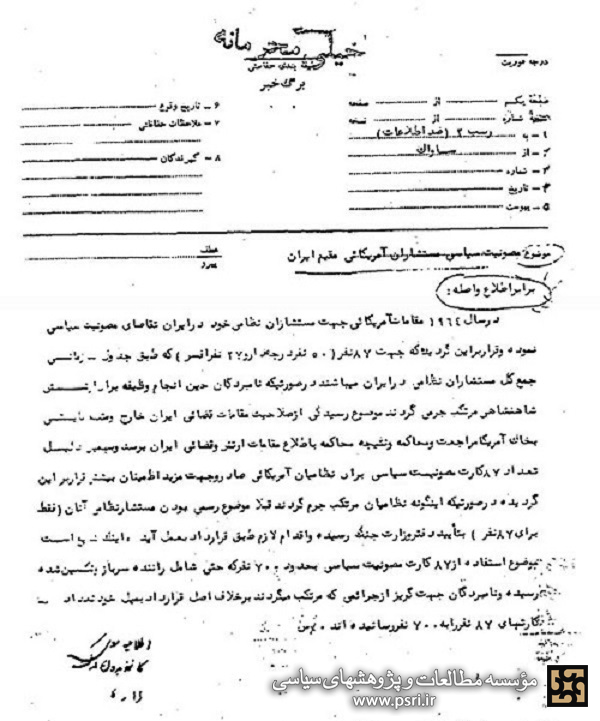 خیلی محرمانه
طبقه بندی حفاظتی
برگ خبر
درجه فوریت
صفحه یکم ـــ از ـــ صفحه
نسخه شماره ـــ از ـــ نسخه
۱ – به (ضد اطلاعات)
۲ – از ساواک
۳ – شماره
۴ – تاریخ
۵ – پیوست
۶ – تاریخ وقوع
۷ – ملاحظات حفاظتی
۸ – گیرندگان
موضوع مصونیت سیاسی مستشاران آمریکائی مقیم ایران
عطف
پیرو
برابر اطلاع واصله :
در سال ۱۹۶۴ مقامات آمریکائی جهت مستشاران نظامی خود در ایران تقاضای مصونیت سیاسی
نموده و قرار براین گردیده که جهت ۸۷ نفر (۵۰ نفر درجه دار و ۲۷ نفر افسر) که طبق جدول
جمع کل مستشاران نظامی در ایران میباشند در صورتیکه نامبردگان حین انجام وظیفه برای ارتش
شاهنشاهی مرتکب جرمی گردند موضوع رسیدگی از صلاحیت مقامات قضائی ایران خارج و
بخاک آمریکا مراجعت و محاکمه و نتیجه محاکمه باطلاع مقامات ارتش و قضائی ایران برسد و بهمین دلیل
تعداد ۸۷ کارت مصونیت سیاسی برای نظامیان آمریکائی صادر و جهت مزید اطمینان بیشتر قرار براین
گردیده در صورتیکه اینگونه نظامیان مرتکب جرم گردند قبلا موضوع رسمی بودن مستشار نظامی آنان (فقط
برای ۸۷ نفر) بتأیید دفتر وزارت جنگ رسیده و اقدام لازم طبق قرارداد بعمل آید . اینک است
موضوع استفاده از ۸۷ کارت مصونیت سیاسی بحدود ۷۰۰ نفر که حتی شامل راننده سرباز
رسیده و نامبردگان جهت گریز از جرائمی که مرتکب میگردند برخلاف اصل قرارداد بمیل خود تعداد
کارتهای ۸۷ نفر را به ۷۰۰ نفر رسانیده اند .
مؤسسه مطالعات و پژوهشهای سیاسی
www.psri.ir